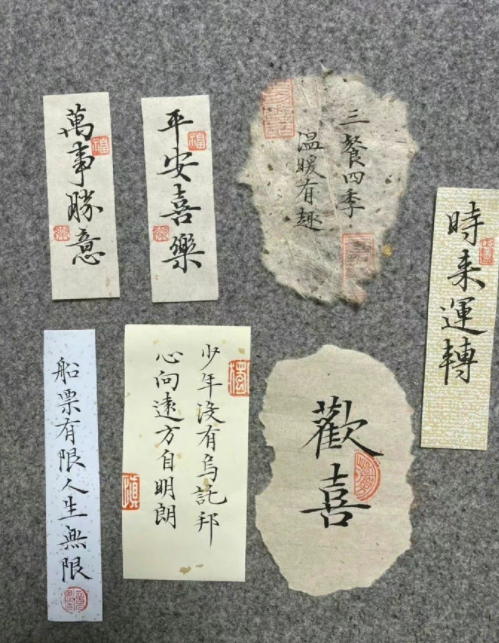 萬事勝意
平安喜樂
三餐四季
溫暖有趣
時来運轉
船票有限人生無限
少年沒有烏託邦
心向遠方自明朗
歡喜
福
福